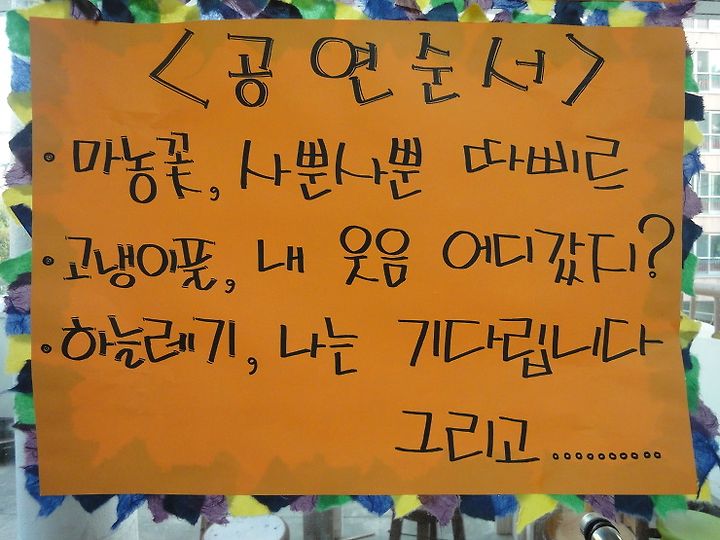 <공연순서>
· 마농꽃, 사뿐사뿐 따삐르
· 고냉이풀, 내 웃음 어디갔지?
· 하늘레기, 나는 기다립니다
그리고...........